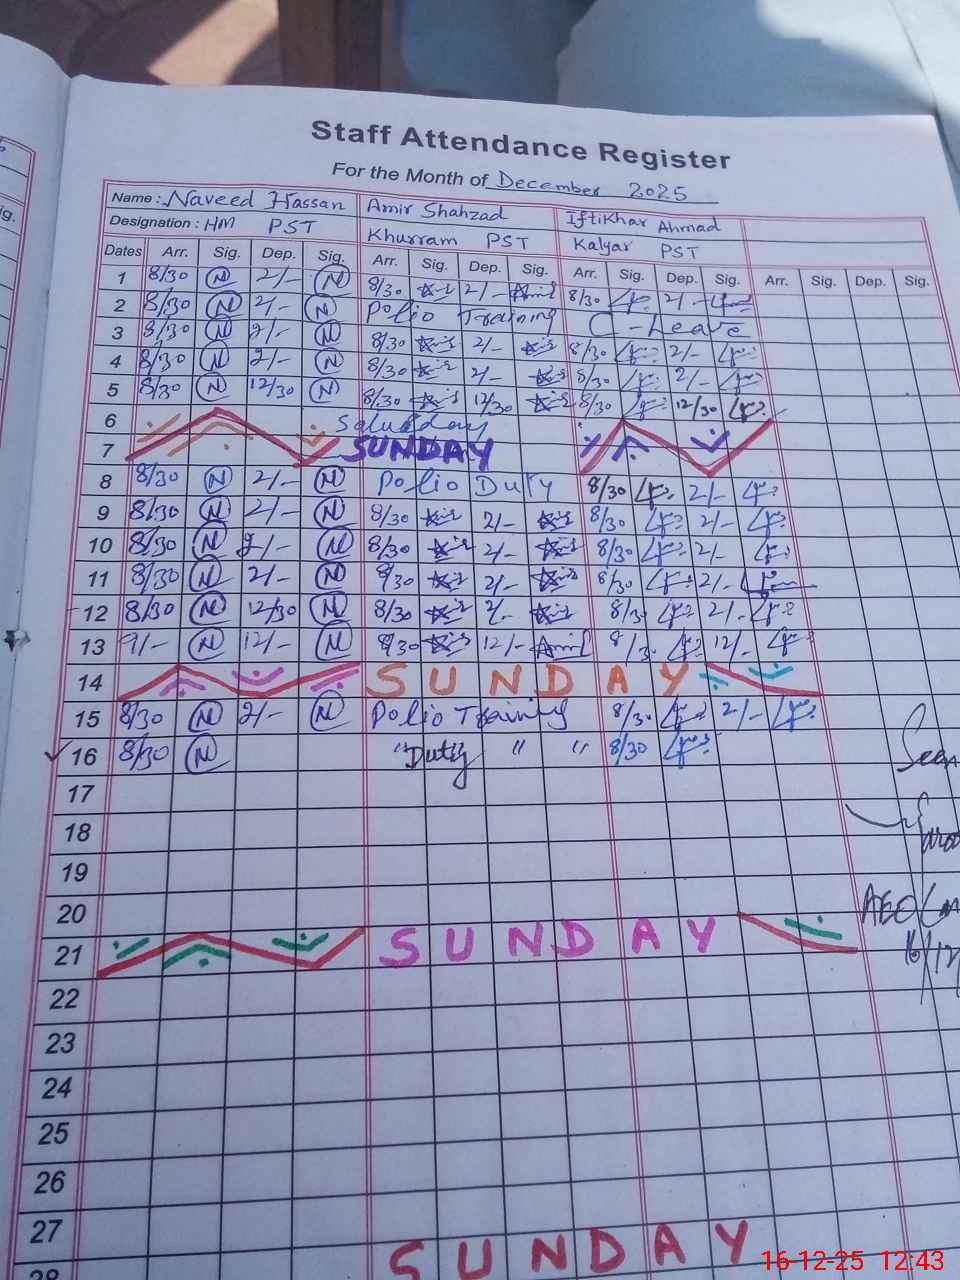 Staff Attendance Register
For the Month of December 2025
Name : Naveed Hassan Amir Shahzad Iftikhar Ahmad
Designation : HM PST Khurram PST Kalyar PST
Dates Arr. Sig. Dep. Sig. Arr. Sig. Dep. Sig. Arr. Sig. Dep. Sig. Arr. Sig. Dep. Sig.
1 8/30 N 2/- N 8/30 2/- 8/30 2/-
2 8/30 N 2/- N Polio Training C-Leave
3 8/30 N 2/- N 8/30 2/- 8/30 2/-
4 8/30 N 2/- N 8/30 2/- 8/30 2/-
5 8/30 N 12/30 N 8/30 12/30 8/30 12/30
6
7 SUNDAY
8 8/30 N 2/- N Polio Duty 8/30 2/-
9 8/30 N 2/- N 8/30 2/- 8/30 2/-
10 8/30 N 2/- N 8/30 2/- 8/30 2/-
11 8/30 N 2/- N 8/30 2/- 8/30 2/-
12 8/30 N 12/30 N 8/30 2/- 8/30 2/-
13 9/- N 12/- N 8/30 12/- 8/30 12/-
14 SUNDAY
15 8/30 N 2/- N Polio Training 8/30 2/-
16 8/30 N "Duty " " 8/30
17
18
19
20
21 SUNDAY
22
23
24
25
26
27
28 SUNDAY
AEO
16/12
16-12-25 12:43